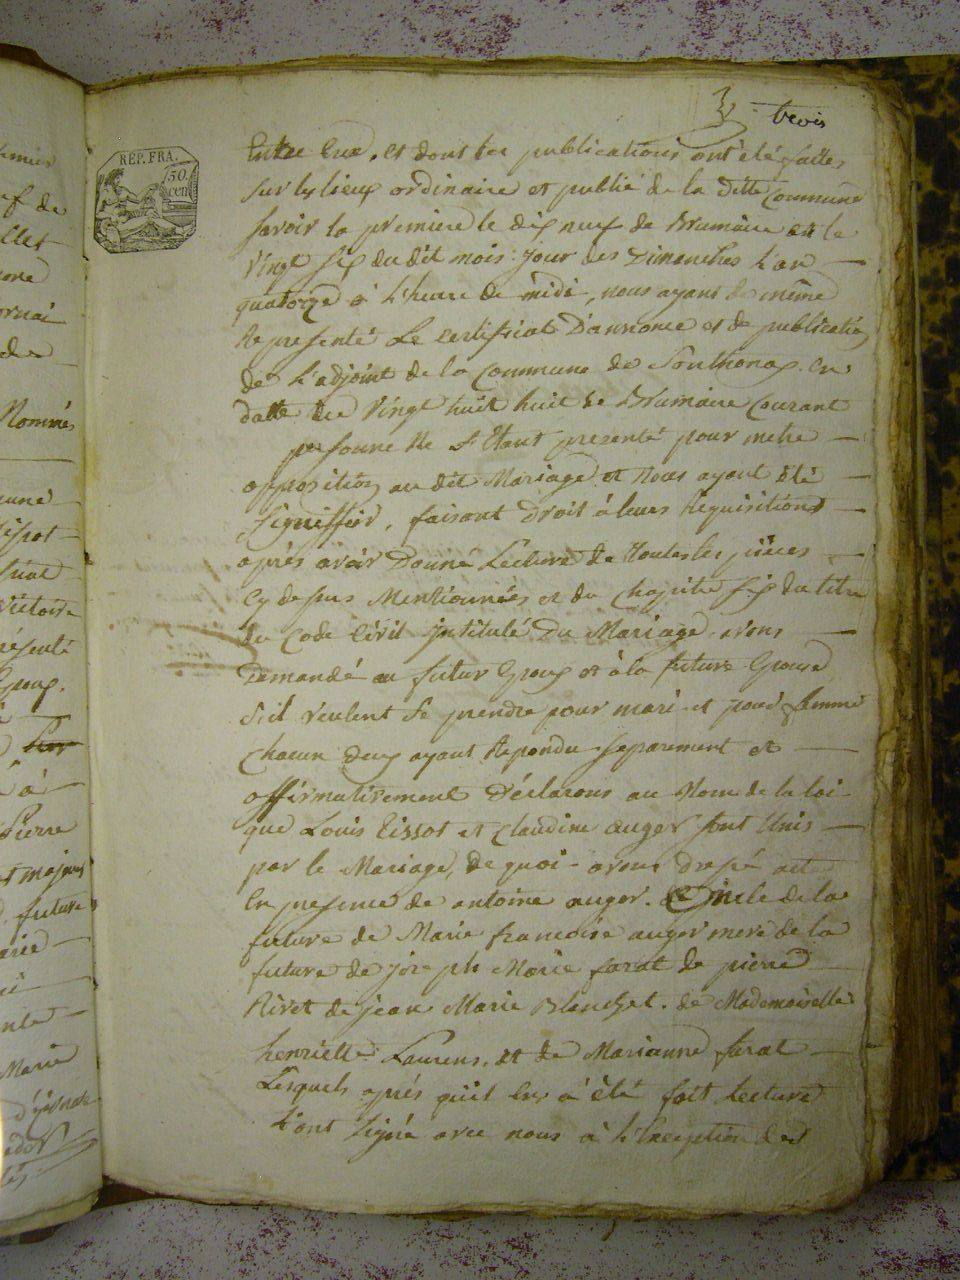 3 trois
REP. FRA.
50.
cen
Entre Eux. et dont les publications ont été faites
sur les lieux ordinaire et publié de la ditte Commune
savoir la premiere le dix neuf de Brumaire et le
vingt six du dit mois jour des Dimanches L'an
quatorze à L'heure de midi, nous ayans de même
Representé Le certificat D'annonce et de publication
de L'adjoint de la Commune de Sonthonax. en
datte du vingt huit huit de Brumaire Courant
personne ne S'Etant presenté pour metre
opposition au dit Mariage et Nous ayant été
Signiffier, faisant droit à leurs Requisitions
après avoir Donné Lecture de Toutes les pièces
cy dessus Mentionnées et du Chapitre six du titre
du Code Civil intitulé Du Mariage avons
Demandé au futur Epoux et à la future Epouse
S'il veulent se prendre pour mari et pour femme
chacun deux ayant Repondu separement et
affirmativement Déclarons au Nom de la loi
que Louis Tissot et Claudine auger sont Unis
par le Mariage, de quoi avons dressé acte
En presence de antoine auger. oncle de la
future de Marie francoise auger mere de la
future de joseph Marie farat de pierre
Rivet de jean Marie Blanchet. de Mademoiselle
henriette Laurens. et de Marianne farat
Lesquels après quil leur à été fait Lecture
L'ont signé avec nous à L'Exception des